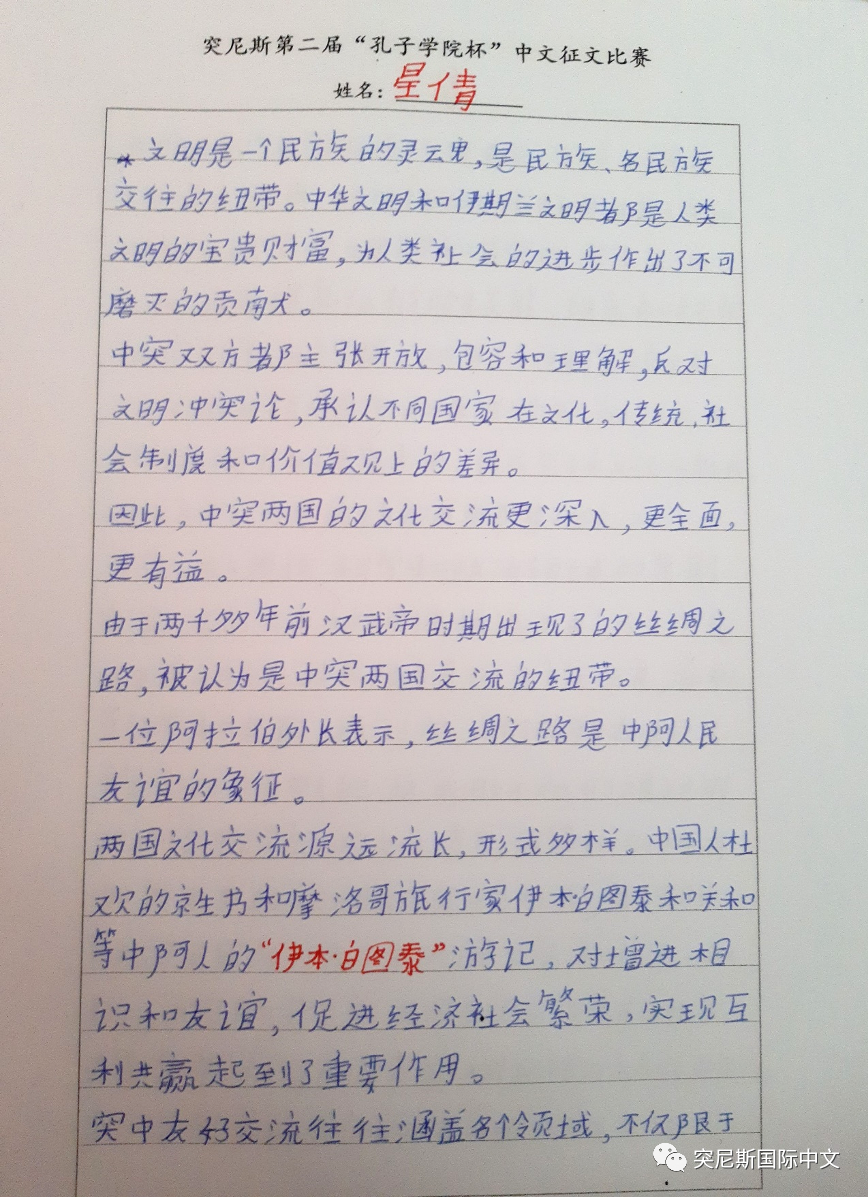 突尼斯第二届“孔子学院杯”中文征文比赛
姓名：星倩
文明是一个民族的灵云鬼，是民族、各民族
交往的纽带。中华文明和伊期兰文明都是人类
文明的宝贵财富，为人类社会的进步作出了不可
磨灭的贡献。
中突双方都主张开放，包容和理解，反对
文明冲突论，承认不同国家在文化，传统、社
会制度和价值观上的差异。
因此，中突两国的文化交流更深入，更全面，
更有益。
由于两千多年前汉武帝时期出现了的丝绸之
路，被认为是中突两国交流的纽带。
一位阿拉伯外长表示，丝绸之路是中阿人民
友谊的象征。
两国文化交流源远流长，形式多样。中国人杜
欢的京生书和摩洛哥旅行家伊本·白图泰和关和
等中阿人的“伊本·白图泰”游记，对增进相
识和友谊，促进经济社会繁荣，实现互
利共赢起到了重要作用。
突中友好交流往往涵盖各个领域，不仅限于
突尼斯国际中文